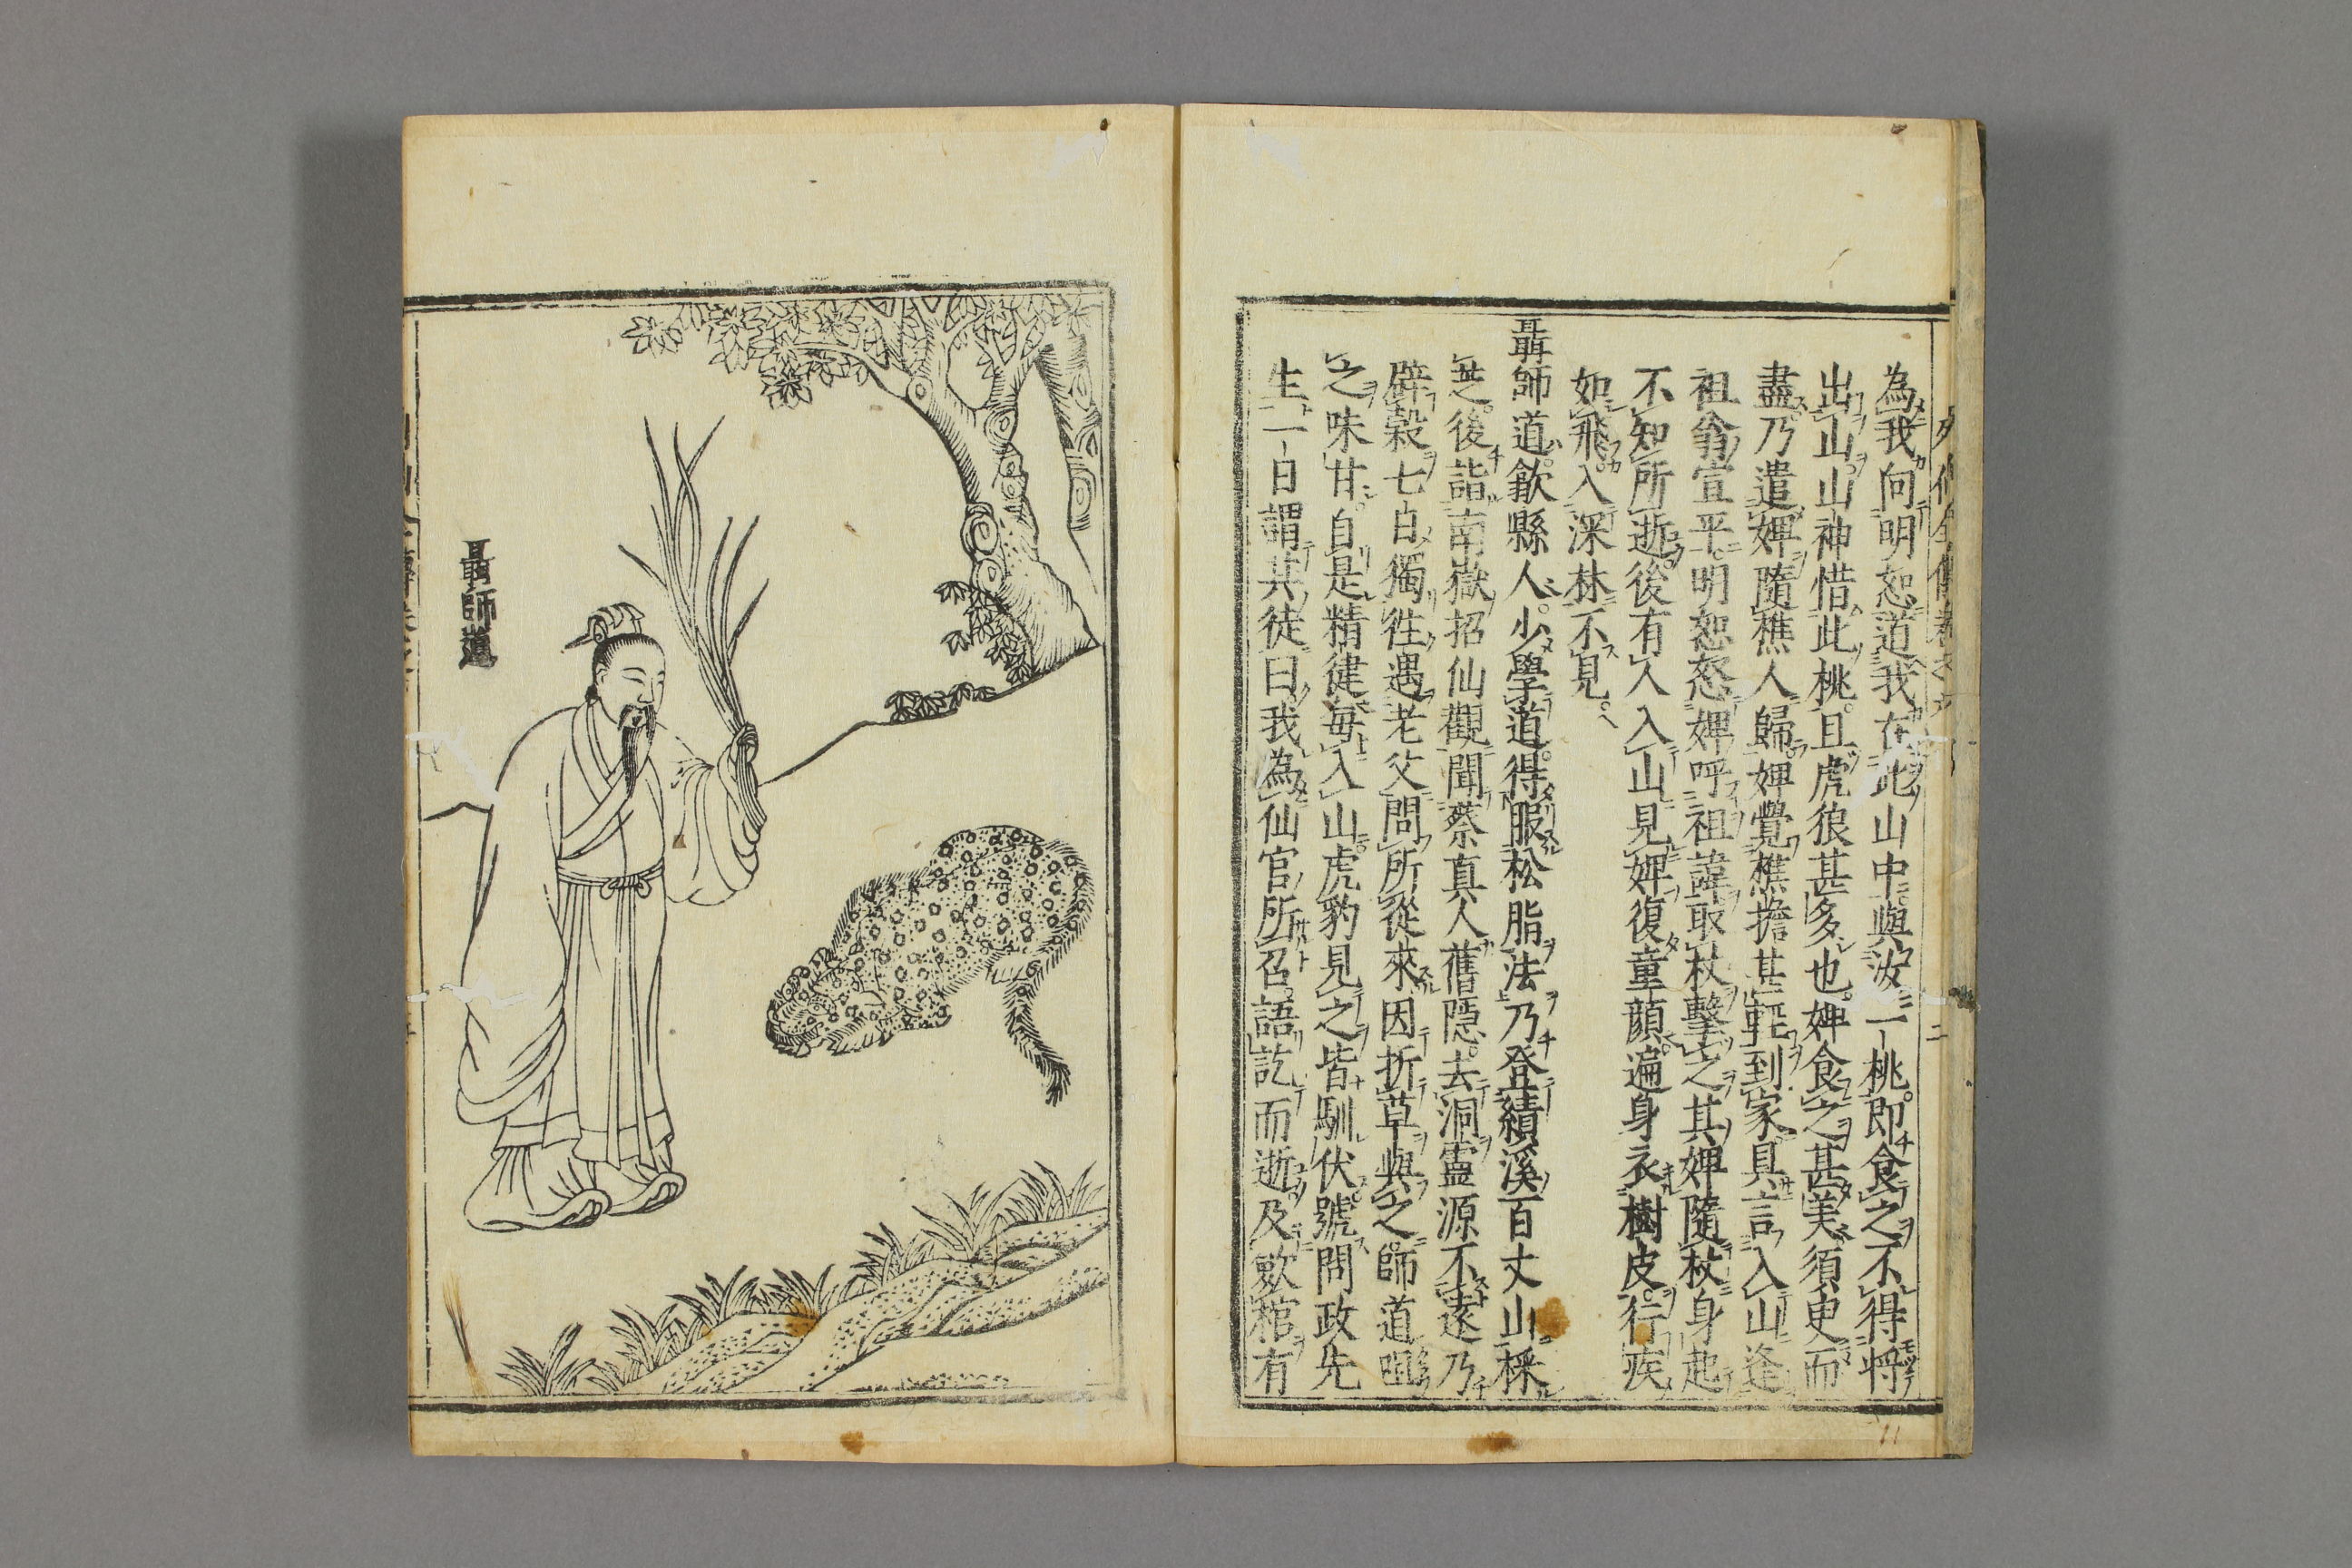 為我向明恕道我在此山中與汝一桃即食之不得將
出山山神惜此桃且虎狼甚多也婢食之甚美須臾而
盡乃遣婢隨樵人歸婢覺樵擔甚輕到家具言入山逢
祖翁宣平明恕怒婢呼祖諱取杖擊之其婢隨杖身起
不知所逝後有人入山見婢復童顏遍身衣樹皮行疾
如飛入深林不見
聶師道歙縣人少學道得服松脂法乃登績溪百丈山採
芝後詣南嶽招仙觀聞蔡真人舊隱去洞靈源不遠乃
辟穀七日獨往遇老父問所從來因折草與之師道咀
之味甘自是精健每入山虎豹見之皆馴伏號問政先
生一日謂其徒曰我為仙官所召語訖而逝及歛棺有
聶師道